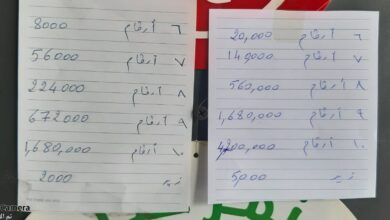 ٦ أرقام 8000
٧ أرقام 56000
٨ أرقام 224000
٩ أرقام 672000
١٠ أرقام 1,680,000
2000
٦ أرقام 20,000
٧ أرقام 140000
٨ أرقام 560,000
٩ أرقام 1,680,000
١٠ أرقام 4,200,000
5,000
Camera